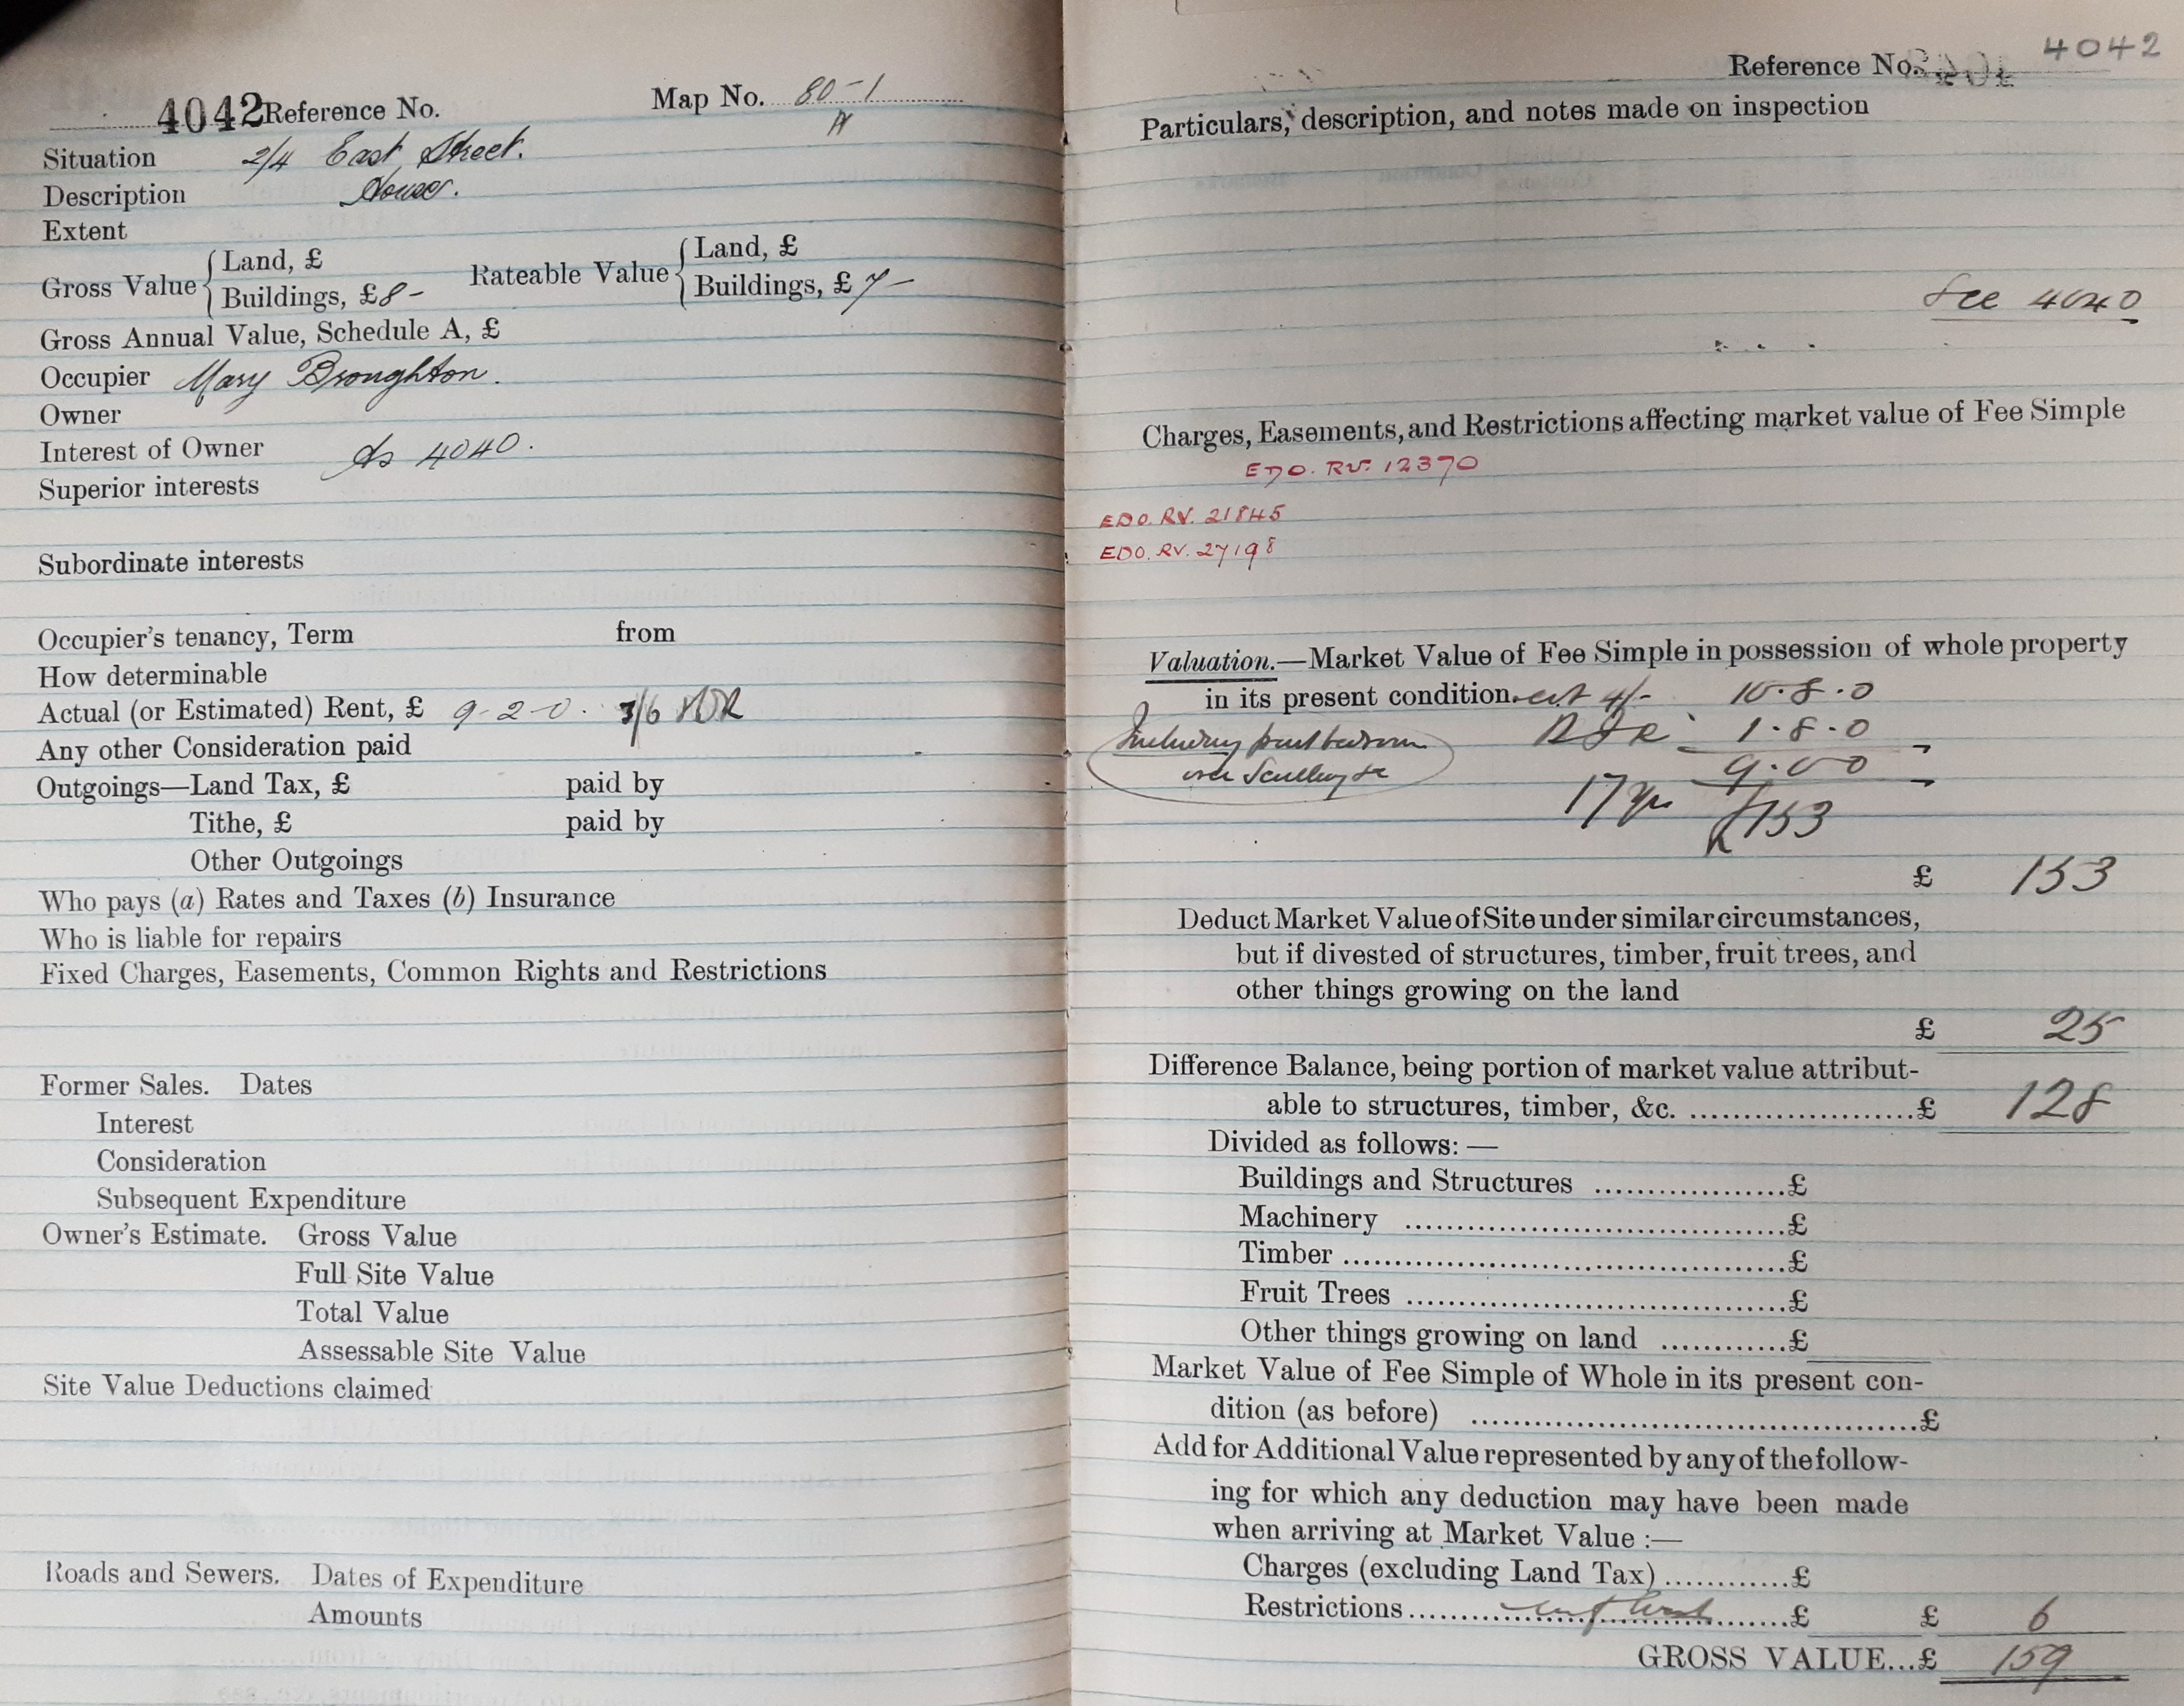 4042 Reference No. Map No. 80-1
Situation 2/4 East Street.
Description House.
Extent
Gross Value { Land, £
Buildings, £ 8 - Rateable Value { Land, £
Buildings, £ 7 -
Gross Annual Value, Schedule A, £
Occupier Mary Broughton.
Owner
Interest of Owner As 4040.
Superior interests
Subordinate interests
Occupier's tenancy, Term from
How determinable
Actual (or Estimated) Rent, £ 9-2-0. 3/6
Any other Consideration paid
Outgoings—Land Tax, £ paid by
Tithe, £ paid by
Other Outgoings
Who pays (a) Rates and Taxes (b) Insurance
Who is liable for repairs
Fixed Charges, Easements, Common Rights and Restrictions
Former Sales. Dates
Interest
Consideration
Subsequent Expenditure
Owner's Estimate. Gross Value
Full Site Value
Total Value
Assessable Site Value
Site Value Deductions claimed
Roads and Sewers. Dates of Expenditure
Amounts
Reference No. 4042
Particulars, description, and notes made on inspection
See 4040
Charges, Easements, and Restrictions affecting market value of Fee Simple
EDO. RV. 12370
EDO. RV. 21845
EDO. RV. 27198
Valuation.—Market Value of Fee Simple in possession of whole property
in its present condition. est 4/- 10.8.0
Including 1.8.0
over Scullery 9.00
17 yrs £153
£ 153
Deduct Market Value of Site under similar circumstances,
but if divested of structures, timber, fruit trees, and
other things growing on the land
£ 25
Difference Balance, being portion of market value attribut-
able to structures, timber, &c. .....................£ 128
Divided as follows: —
Buildings and Structures ...................£
Machinery ....................................£
Timber ..........................................£
Fruit Trees ....................................£
Other things growing on land ............£
Market Value of Fee Simple of Whole in its present con-
dition (as before) .........................................£
Add for Additional Value represented by any of the follow-
ing for which any deduction may have been made
when arriving at Market Value :—
Charges (excluding Land Tax) ............£
Restrictions ....................................£ £ 6
GROSS VALUE...£ 159